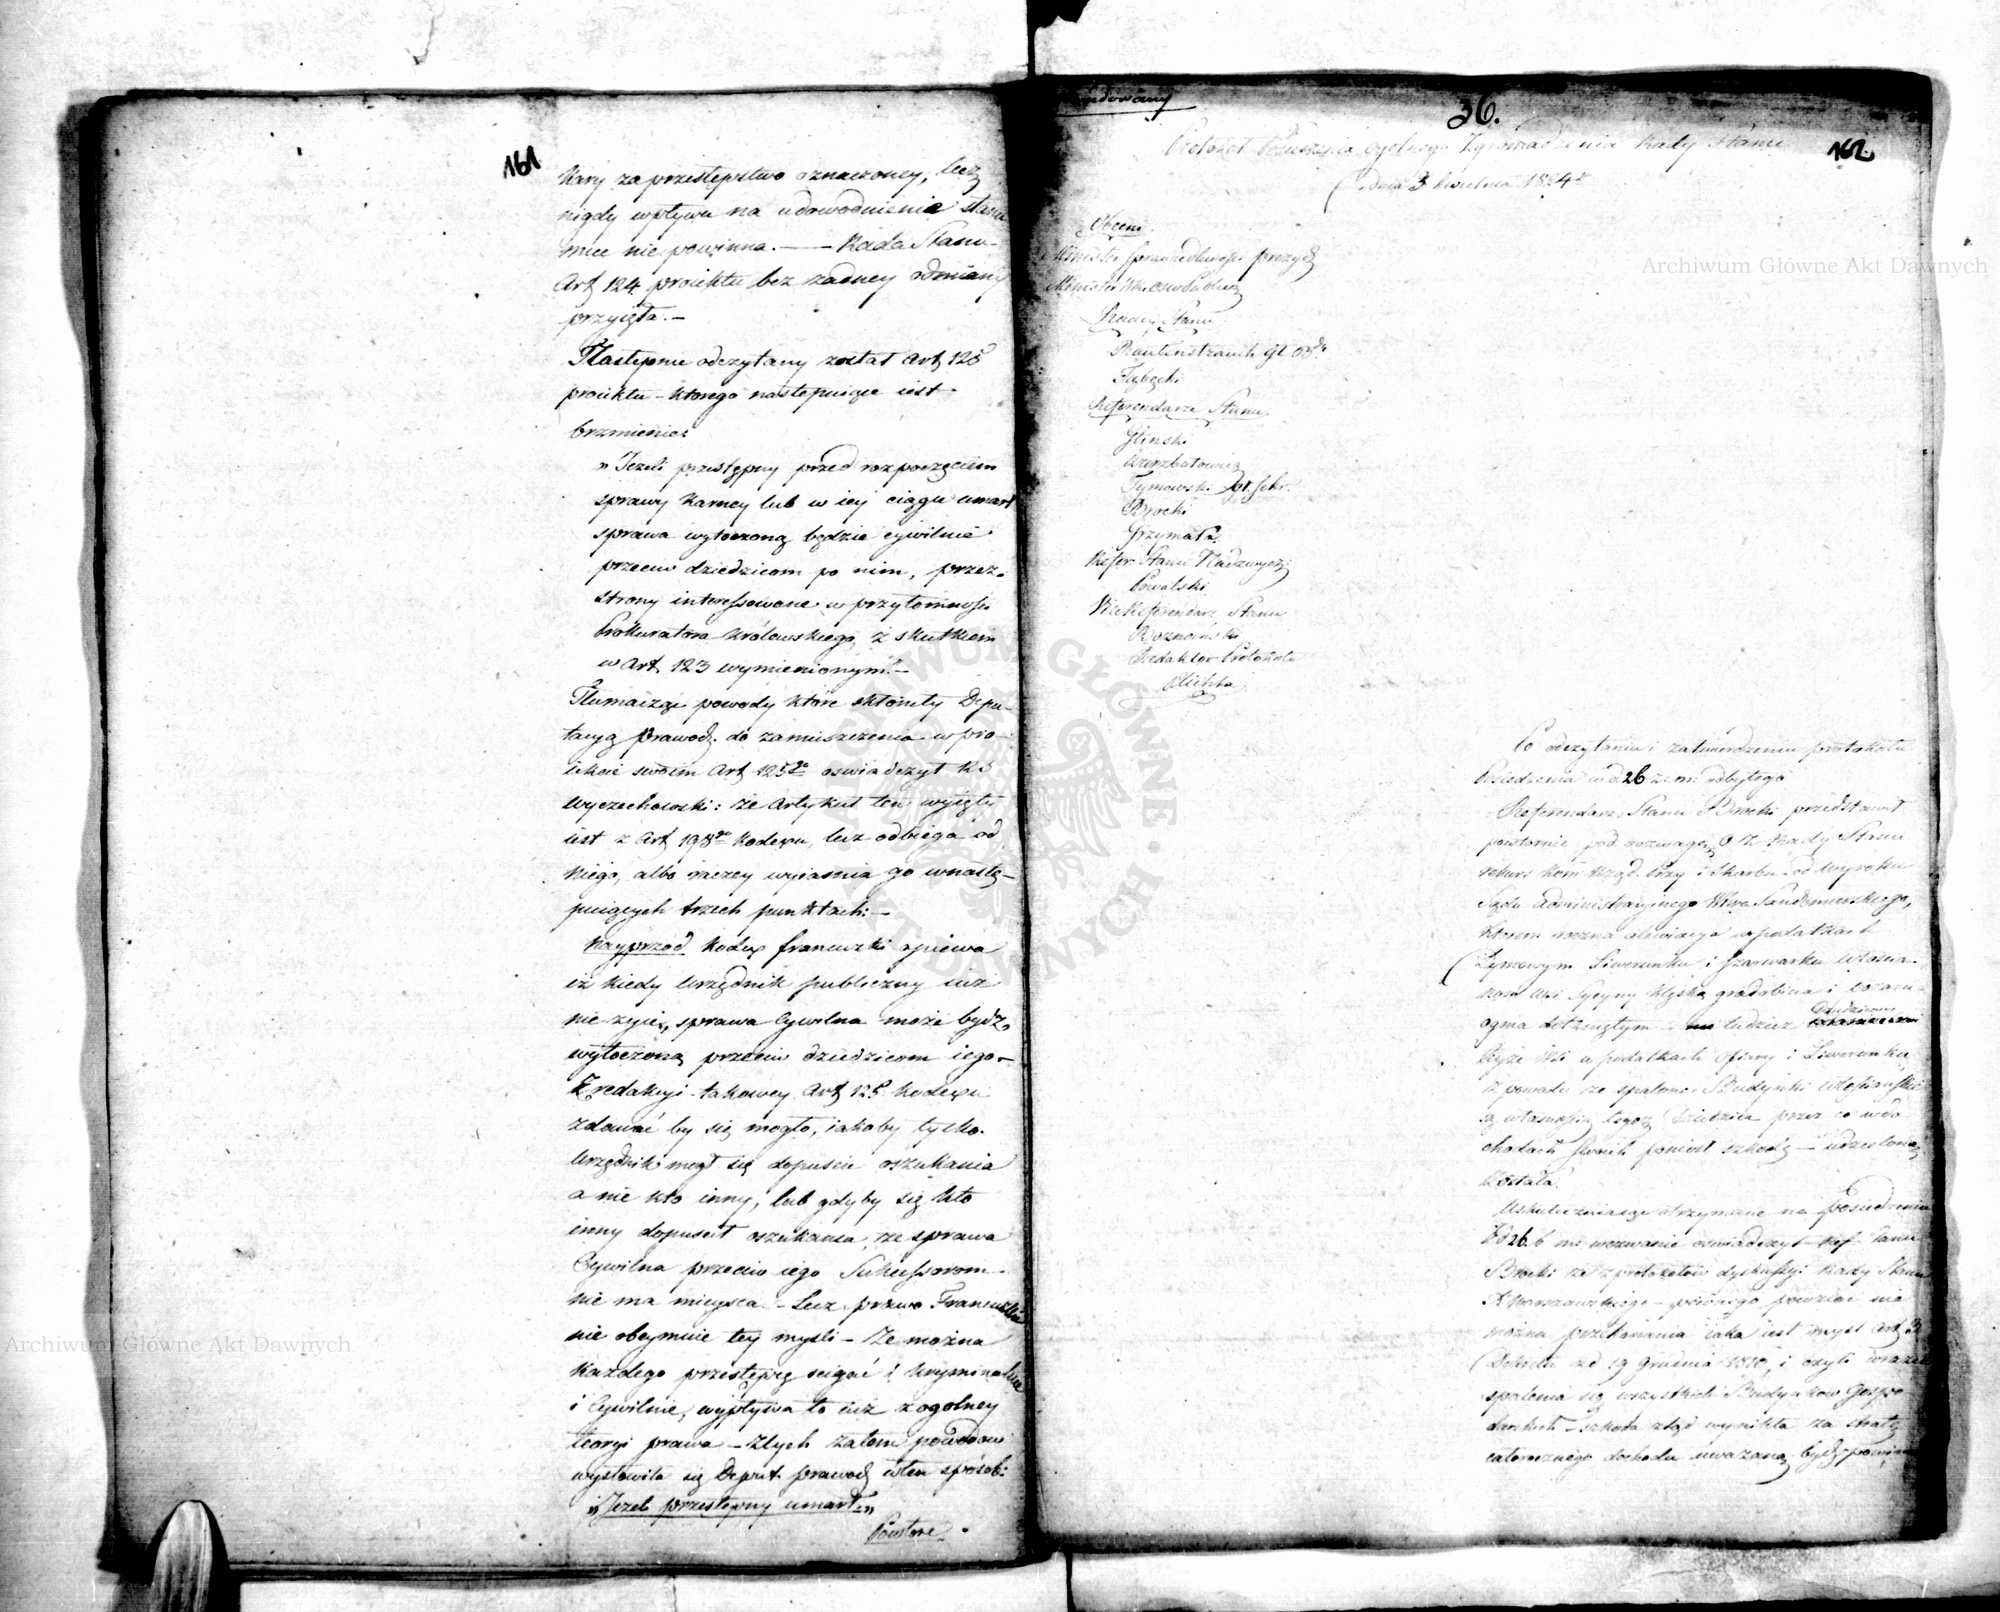 161
Kary za przestępstwo oznaczoney, lecz
nigdy wpływu na udowodnienie stanu
miec nie powinna. — Rada Stanu
Art 124 proiektu bez żadney odmiany
przyięła. —
Następnie odczytany został Art 125
proiektu – którego następuiące iest
brzmienie:
„Jeżeli przestępny przed rozpoczęciem
sprawy karney lub w iey ciągu umarł
sprawa wytoczoną będzie cywilnie
przeciw dziedzicom po nim, przez
strony interessowane w przytomności
Prokuratora Królewskiego, z skutkiem
w Art 123 wymienionym." —
Tłumacząc powody które skłoniły Depu-
tacyą Prawod. do zamieszczenia w pro-
iekcie swoim Art 125go oswiadczył RS
Wyczechowski: że Artykuł ten wyięty
iest z Art 198go Kodexu, lecz odbiega od
niego, albo raczey wyiasnia go w nastę-
puiących trzech punktach: —
Nayprzód Kodex francuzki opiewa
iż kiedy urzędnik publiczny iuż
nie żyie, sprawa Cywilna może bydz
wytoczoną przeciw dziedzicom iego —
Z redakcyi takowey Art 125 Kodexu
zdawać by się mogło, iakoby tylko
urzędnik mógł się dopuścić oszukania
a nie kto inny, lub gdyby się kto
inny dopuścił oszukania, że sprawa
Cywilna przeciw iego Sukcessorom
nie ma mieysca. – Lecz prawo Francuzkie
nie obeymuie tey myśli – Że można
każdego przestępcę ścigać i kryminalnie
i Cywilnie, wypływa to iuż z ogolney
teoryi prawa – Z tych zatem powodow
wysłowiła się Deput. Prawod. w ten sposób:
„Jeżeli przestępny umarł."
Powtore
36.
162.
Protokół Posiedzenia ogólnego Zgromadzenia Rady Stanu
dnia 3 kwietnia 1824 r
Obecni.
Minister Sprawiedliwości prezyd
Minister
Radcy Stanu
Rautenstrauch gł
Referendarze Stanu
Gliński
Wierzbołowicz
Tymowski gł. sekr.
Brocki
Grzymała
Refer. Stanu Nadzwycz:
Kowalski
Vice Referendarz Stanu
Roznański
Redaktor Protokołu
Plichta
Po odczytaniu i zatwierdzeniu protokołu
Posiedzenia w d 26 z. m. odbytego
Referendarz Stanu Brocki przedstawił
powtórnie pod rozwagę O Z Rady Stanu
rekurs Kom Rząd. Przy i Skarbu od wyroku
Sądu Administracyjnego Wtwa Sandomierskiego,
którem roczna alewiacya w podatkach
Dymowym Liwerunku i Szarwarku Włościa-
nom Wsi klęską gradobicia i
ognia dotkniętym – niemniej Dziedzicowi
teyże Wsi w podatkach ofiary i Liwerunku
z powodu że spalone Budynki Włościańskie
są własnością tegoż Dziedzica przez co w do
chodach swoich poniosł szkodę – udzieloną
została.
Uskuteczniaiąc otrzymane na Posiedzeniu
z d 26 b m wezwanie oswiadczył ref. Stanu
Brocki że z protokołów dyskussyi Rady Stanu
X Warszawskiego – pewnego powziąć nie
można przekonania iaka iest myśl Art 3
Dekretu z d 19 Grudnia 1810, i czyli w razie
spalenia się wszystkich Budynków Gospo
darskich – szkoda ztąd wynikła za stratę
całorocznego dochodu uważaną bydź powinna
Archiwum Główne Akt Dawnych
Archiwum Główne Akt Dawnych
ARCHIWUM GŁÓWNE AKT DAWNYCH